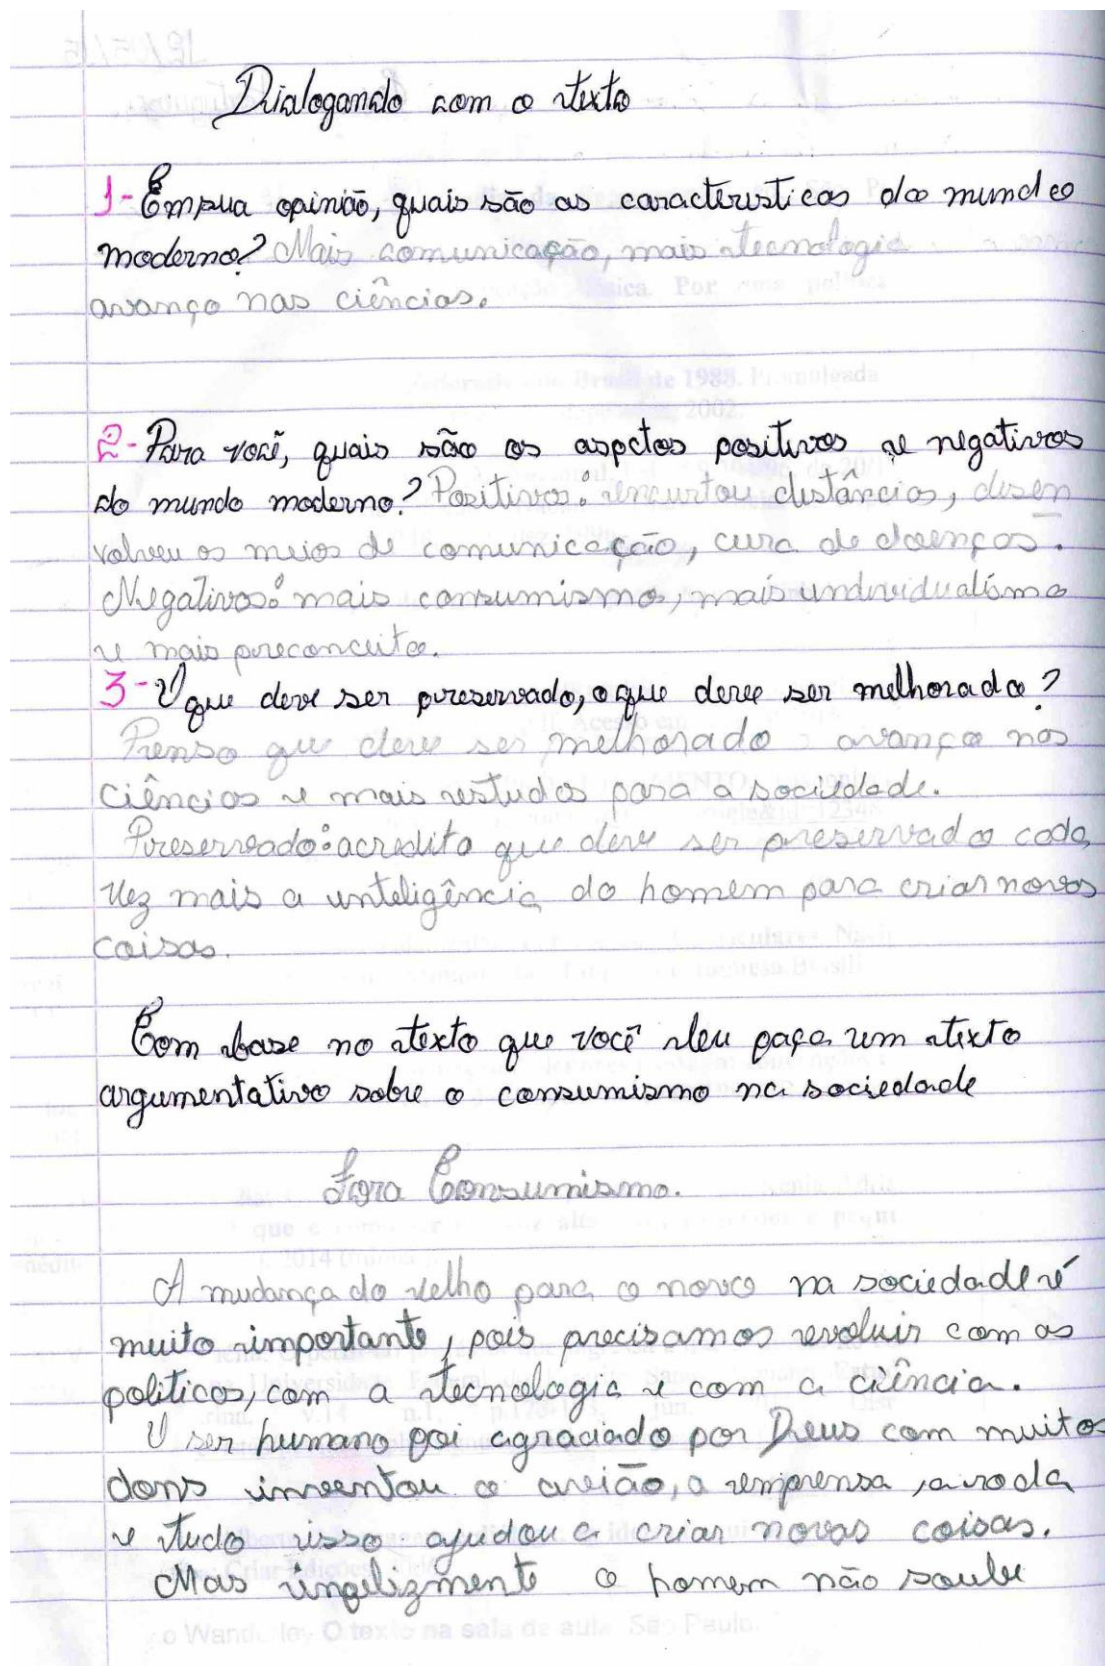 Dialogando com o texto
1- Em sua opinião, quais são as características do mundo
moderno? Mais comunicação, mais tecnologia
avanço nas ciências.
2- Para você, quais são os aspctos positivos e negativos
do mundo moderno? Positivos: encurtou distâncias, desen
volveu os meios de comunicação, cura de doenças.
Negativos: mais consumismo, mais individualismo
e mais preconceito.
3- O que deve ser preservado, o que deve ser melhorado?
Penso que deve ser melhorado: avanço nos
ciências e mais estudos para a sociedade.
Preservado: acredito que deve ser preservado cada
vez mais a inteligência do homem para criar novas
coisas.
Com base no texto que você leu faça um texto
argumentativo sobre o consumismo na sociedade
Fora Consumismo.
A mudança do velho para o novo na sociedade é
muito importante, pois precisamos evoluir com as
politicas, com a tecnologia e com a ciência.
O ser humano foi agraciado por Deus com muitos
dons inventou o avião, a emprensa, a roda
e tudo isso ajudou a criar novas coisas.
Mas infelizmente o homem não soube